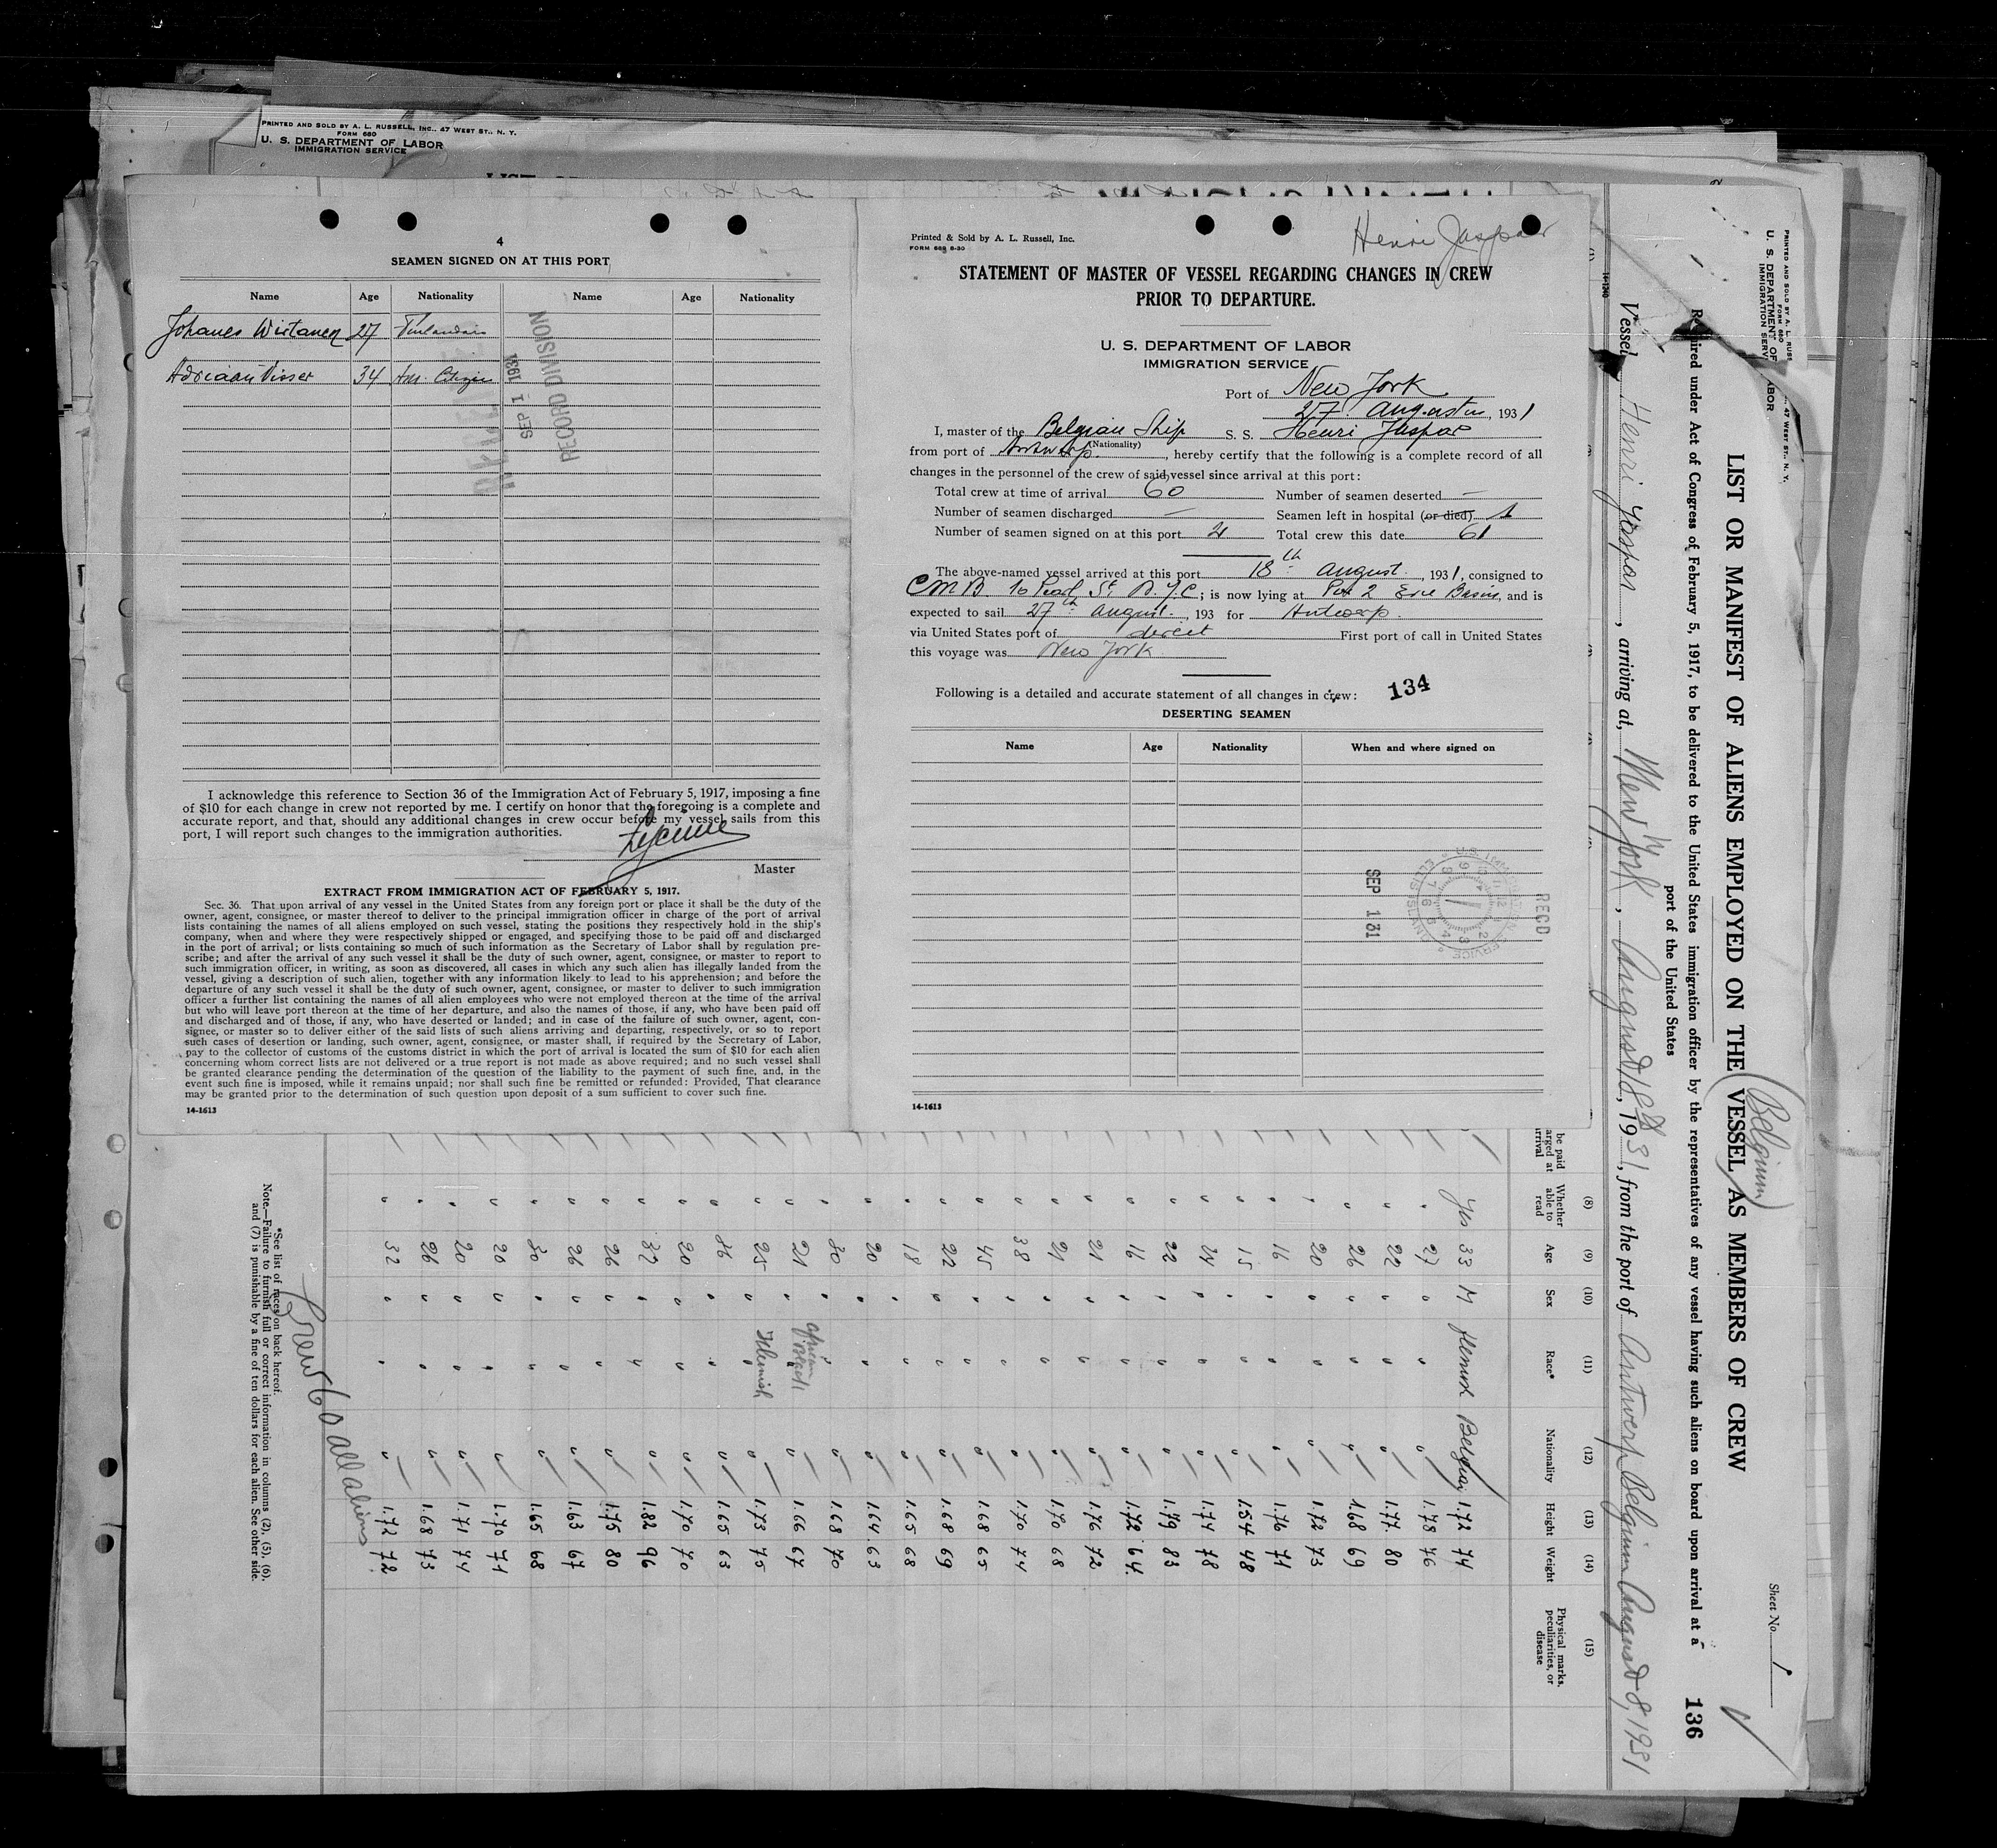 PRINTED AND SOLD BY A. L. RUSSELL, INC., 47 WEST ST., N. Y.
FORM 680
U. S. DEPARTMENT OF LABOR
IMMIGRATION SERVICE
4
SEAMEN SIGNED ON AT THIS PORT
Name Age Nationality Name Age Nationality
Johanes Wirtanen 27 Finlandais
Adriaan Visser 34 Am. Citizen
SEP 1 1931
RECORD DIVISION
I acknowledge this reference to Section 36 of the Immigration Act of February 5, 1917, imposing a fine
of $10 for each change in crew not reported by me. I certify on honor that the foregoing is a complete and
accurate report, and that, should any additional changes in crew occur before my vessel sails from this
port, I will report such changes to the immigration authorities.
Master
EXTRACT FROM IMMIGRATION ACT OF FEBRUARY 5, 1917.
Sec. 36. That upon arrival of any vessel in the United States from any foreign port or place it shall be the duty of the
owner, agent, consignee, or master thereof to deliver to the principal immigration officer in charge of the port of arrival
lists containing the names of all aliens employed on such vessel, stating the positions they respectively hold in the ship's
company, when and where they were respectively shipped or engaged, and specifying those to be paid off and discharged
in the port of arrival; or lists containing so much of such information as the Secretary of Labor shall by regulation pre-
scribe; and after the arrival of any such vessel it shall be the duty of such owner, agent, consignee, or master to report to
such immigration officer, in writing, as soon as discovered, all cases in which any such alien has illegally landed from the
vessel, giving a description of such alien, together with any information likely to lead to his apprehension; and before the
departure of any such vessel it shall be the duty of such owner, agent, consignee, or master to deliver to such immigration
officer a further list containing the names of all alien employees who were not employed thereon at the time of the arrival
but who will leave port thereon at the time of her departure, and also the names of those, if any, who have been paid off
and discharged and of those, if any, who have deserted or landed; and in case of the failure of such owner, agent, con-
signee, or master so to deliver either of the said lists of such aliens arriving and departing, respectively, or so to report
such cases of desertion or landing, such owner, agent, consignee, or master shall, if required by the Secretary of Labor,
pay to the collector of customs of the customs district in which the port of arrival is located the sum of $10 for each alien
concerning whom correct lists are not delivered or a true report is not made as above required; and no such vessel shall
be granted clearance pending the determination of the question of the liability to the payment of such fine, and, in the
event such fine is imposed, while it remains unpaid; nor shall such fine be remitted or refunded: Provided, That clearance
may be granted prior to the determination of such question upon deposit of a sum sufficient to cover such fine.
14-1613
Printed & Sold by A. L. Russell, Inc.
FORM 689 8-30
Henri Jaspar
STATEMENT OF MASTER OF VESSEL REGARDING CHANGES IN CREW
PRIOR TO DEPARTURE.
U. S. DEPARTMENT OF LABOR
IMMIGRATION SERVICE
Port of New York
27 Augustus, 1931
I, master of the Belgian Ship S. S. Henri Jaspar
(Nationality)
from port of Antwerp, hereby certify that the following is a complete record of all
changes in the personnel of the crew of said vessel since arrival at this port:
Total crew at time of arrival 60 Number of seamen deserted —
Number of seamen discharged — Seamen left in hospital (or died) 1
Number of seamen signed on at this port 2 Total crew this date 61
The above-named vessel arrived at this port 18th August, 1931, consigned to
C M B 10 Pearl St N.Y.C; is now lying at Pier 2 Erie Basin, and is
expected to sail 27th August, 193 for Antwerp.
via United States port of direct First port of call in United States
this voyage was New York
Following is a detailed and accurate statement of all changes in crew: 134
DESERTING SEAMEN
Name Age Nationality When and where signed on
SEP 1 31
RECD
14-1613
PRINTED AND SOLD BY A. L. RUSS
FORM 680
U. S. DEPARTMENT OF LABOR
IMMIGRATION SERV
47 WEST ST., N. Y.
Sheet No. 1
(Belgium)
LIST OR MANIFEST OF ALIENS EMPLOYED ON THE VESSEL AS MEMBERS OF CREW
136
Required under Act of Congress of February 5, 1917, to be delivered to the United States immigration officer by the representatives of any vessel having such aliens on board upon arrival at a
port of the United States
Vessel Henri Jaspar, arriving at New York, August 18th, 1931, from the port of Antwerp Belgium August 8, 1931
14-1240
(8) (9) (10) (11) (12) (13) (14) (15)
be paid
arged at
rrival
Whether able to read Age Sex Race* Nationality Height Weight Physical marks, peculiarities, or disease
Yes 33 M flemish Belgian 1.72 74
27 1.78 76
22 1.77 80
26 1.68 69
20 1.72 73
16 1.76 71
15 1.54 48
24 1.74 78
22 1.79 83
16 1.72 64
21 1.76 72
21 1.70 68
38 1.70 74
45 1.68 65
22 1.68 69
18 1.65 68
20 1.64 63
30 1.68 70
21 African black 1.66 67
25 Flemish 1.73 75
36 1.65 63
20 1.70 70
32 1.82 96
26 1.75 80
26 1.63 67
30 1.65 68
20 1.70 71
20 1.71 74
26 1.68 73
32 1.72 72
Crew 60 all aliens
*See list of races on back hereof.
Note.—Failure to furnish full or correct information in columns (2), (5), (6),
and (7) is punishable by a fine of ten dollars for each alien. See other side.